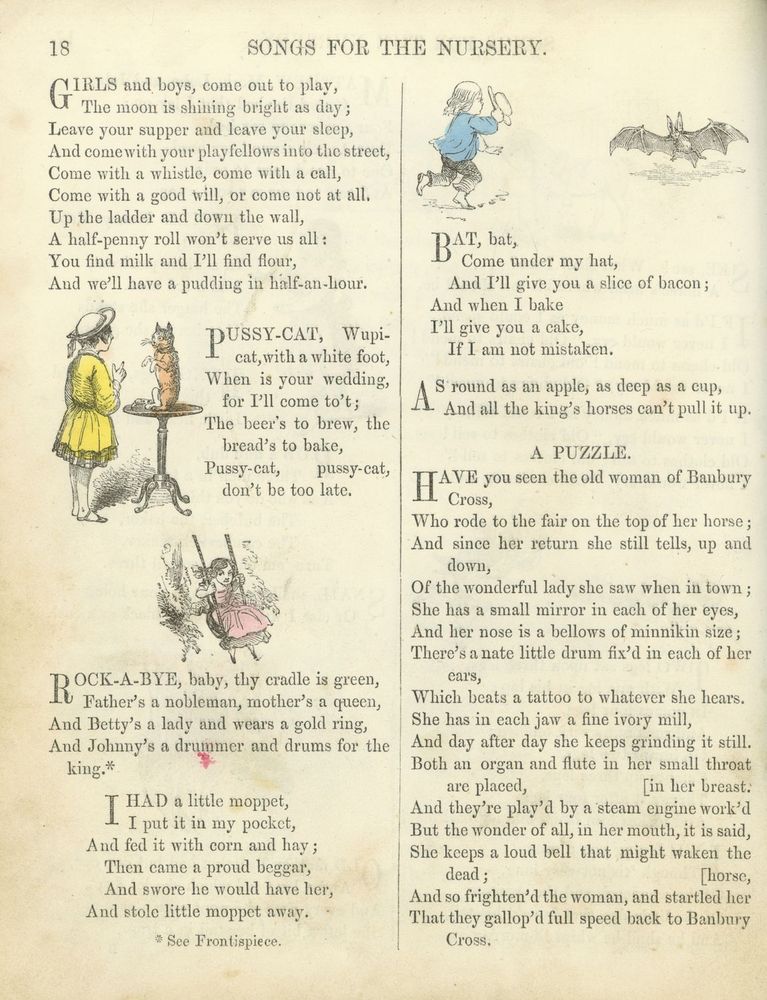 18
SONGS FOR THE NURSERY.
GIRLS and boys, come out to play,
The moon is shining bright as day;
Leave your supper and leave your sleep,
And come with your playfellows into the street,
Come with a whistle, come with a call,
Come with a good will, or come not at all.
Up the ladder and down the wall,
A half-penny roll won't serve us all:
You find milk and I'll find flour,
And we'll have a pudding in half-an-hour.
PUSSY-CAT, Wupi-
cat, with a white foot,
When is your wedding,
for I'll come to't;
The beer's to brew, the
bread's to bake,
Pussy-cat, pussy-cat,
don't be too late.
ROCK-A-BYE, baby, thy cradle is green,
Father's a nobleman, mother's a queen,
And Betty's a lady and wears a gold ring,
And Johnny's a drummer and drums for the
king.*
I HAD a little moppet,
I put it in my pocket,
And fed it with corn and hay;
Then came a proud beggar,
And swore he would have her,
And stole little moppet away.
* See Frontispiece.
BAT, bat,
Come under my hat,
And I'll give you a slice of bacon;
And when I bake
I'll give you a cake,
If I am not mistaken.
AS round as an apple, as deep as a cup,
And all the king's horses can't pull it up.
A PUZZLE.
HAVE you seen the old woman of Banbury
Cross,
Who rode to the fair on the top of her horse;
And since her return she still tells, up and
down,
Of the wonderful lady she saw when in town;
She has a small mirror in each of her eyes,
And her nose is a bellows of minnikin size;
There's a nate little drum fix'd in each of her
ears,
Which beats a tattoo to whatever she hears.
She has in each jaw a fine ivory mill,
And day after day she keeps grinding it still.
Both an organ and flute in her small throat
are placed, [in her breast.
And they're play'd by a steam engine work'd
But the wonder of all, in her mouth, it is said,
She keeps a loud bell that might waken the
dead; [horse,
And so frighten'd the woman, and startled her
That they gallop'd full speed back to Banbury
Cross.